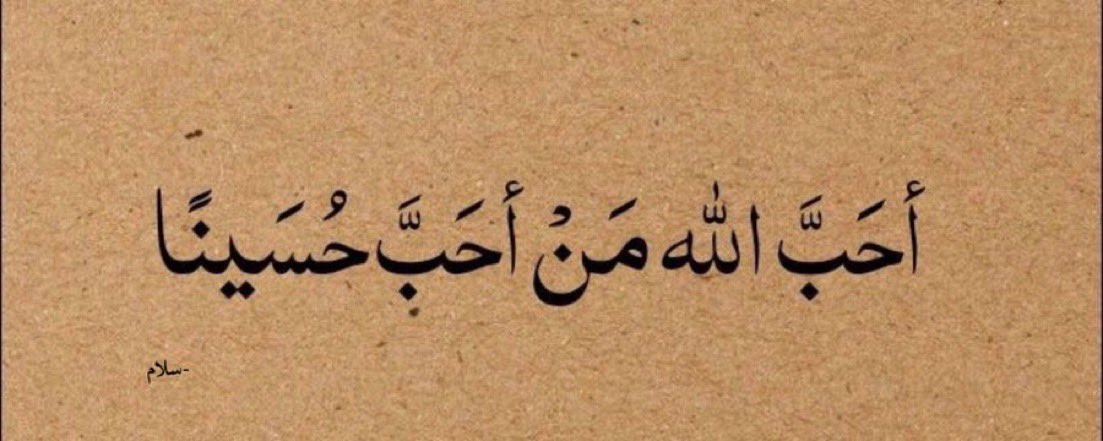 أحَبَّ اللّٰه مَنْ أحَبَّ حُسَينًا
-سلام